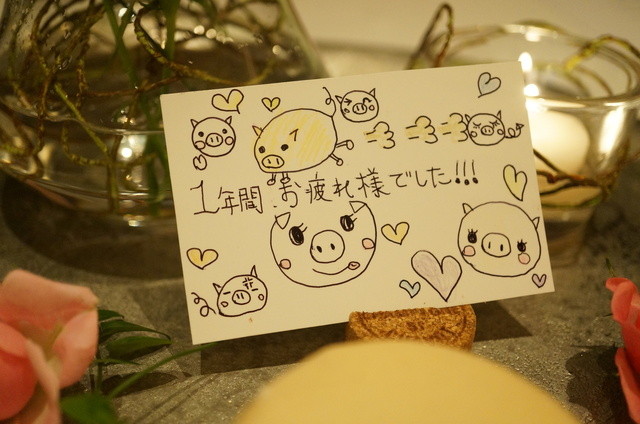 1年間お疲れ様でした!!!